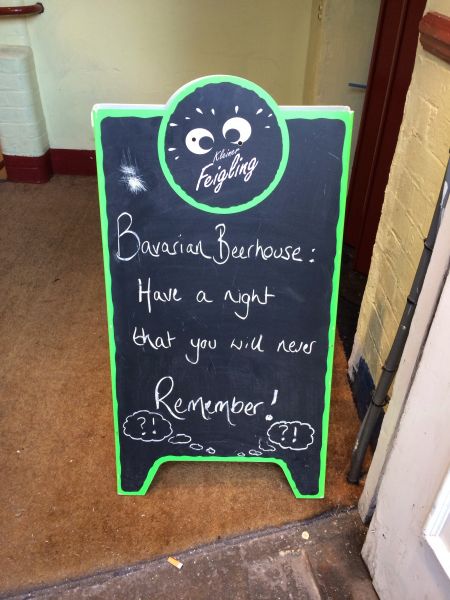 Kleiner
Feigling
Bavarian Beerhouse:
Have a night
that you will never
Remember!
?! ?!